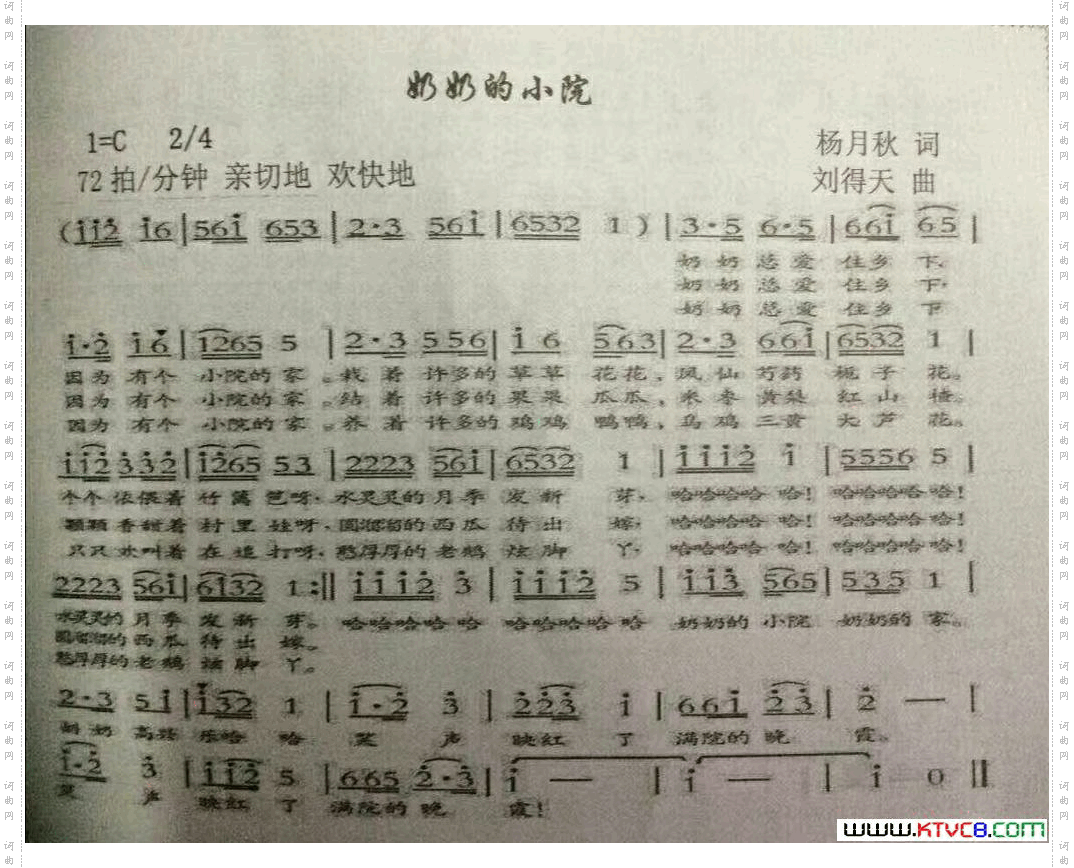 奶奶的小院
1=C 2/4 杨月秋 词
72拍/分钟 亲切地 欢快地 刘得天 曲
(i̇i̇2̇ i̇6 | 56i̇ 653 | 2·3 56i̇ | 6532 1 ) | 3·5 6·5 | 66i̇ 65 |
奶奶总爱 住乡 下,
奶奶总爱 住乡 下,
奶奶总爱 住乡 下
i̇·2̇ i̇6 | i̇265 5 | 2·3 556 | i̇ 6 563 | 2·3 66i̇ | 6532 1 |
因为有个 小院的家。栽着 许多的草草 花花,凤仙芍药 栀子 花。
因为有个 小院的家。结着 许多的果果 瓜瓜,米枣黄梨 红山 楂。
因为有个 小院的家。养着 许多的鸡鸡 鸭鸭,乌鸡三黄 大芦 花。
i̇i̇2̇ 3̇3̇2̇ | i̇2̇65 53 | 2223 56i̇ | 6532 1 | i̇i̇i̇2̇ i̇ | 5556 5 |
个个依偎着 竹篱笆呀,水灵灵的月季 发新 芽,哈哈哈哈 哈!哈哈哈哈 哈!
颗颗香甜着 村里娃呀,圆溜溜的西瓜 待出 嫁,哈哈哈哈 哈!哈哈哈哈 哈!
只只欢叫着 在追打呀,憨厚厚的老鹅 炫脚 丫,哈哈哈哈 哈!哈哈哈哈 哈!
2223 56i̇ | 6i̇32 1 :‖ i̇i̇i̇2̇ 3̇ | i̇i̇i̇2̇ 5 | i̇i̇3̇ 565 | 535 1 |
水灵灵的月季 发新 芽。 哈哈哈哈 哈 哈哈哈哈 哈 奶奶的 小院 奶奶的 家。
圆溜溜的西瓜 待出 嫁。
憨厚厚的老鹅 脚 丫。
2·3 5i̇ | i̇32 1 | i̇·2̇ 3̇ | 2̇2̇3̇ i̇ | 66i̇ 2̇3̇ | 2̇ — |
奶奶高 乐哈 哈 笑 声 映红 了 满院的晚 霞。
i̇·2̇ 3̇ | i̇i̇2̇ 5 | 665 2̇·3̇ | i̇ — | i̇ — | i̇ 0 ‖
笑 声 映红 了 满院的晚 霞!
www.KTVC8.com
词曲网